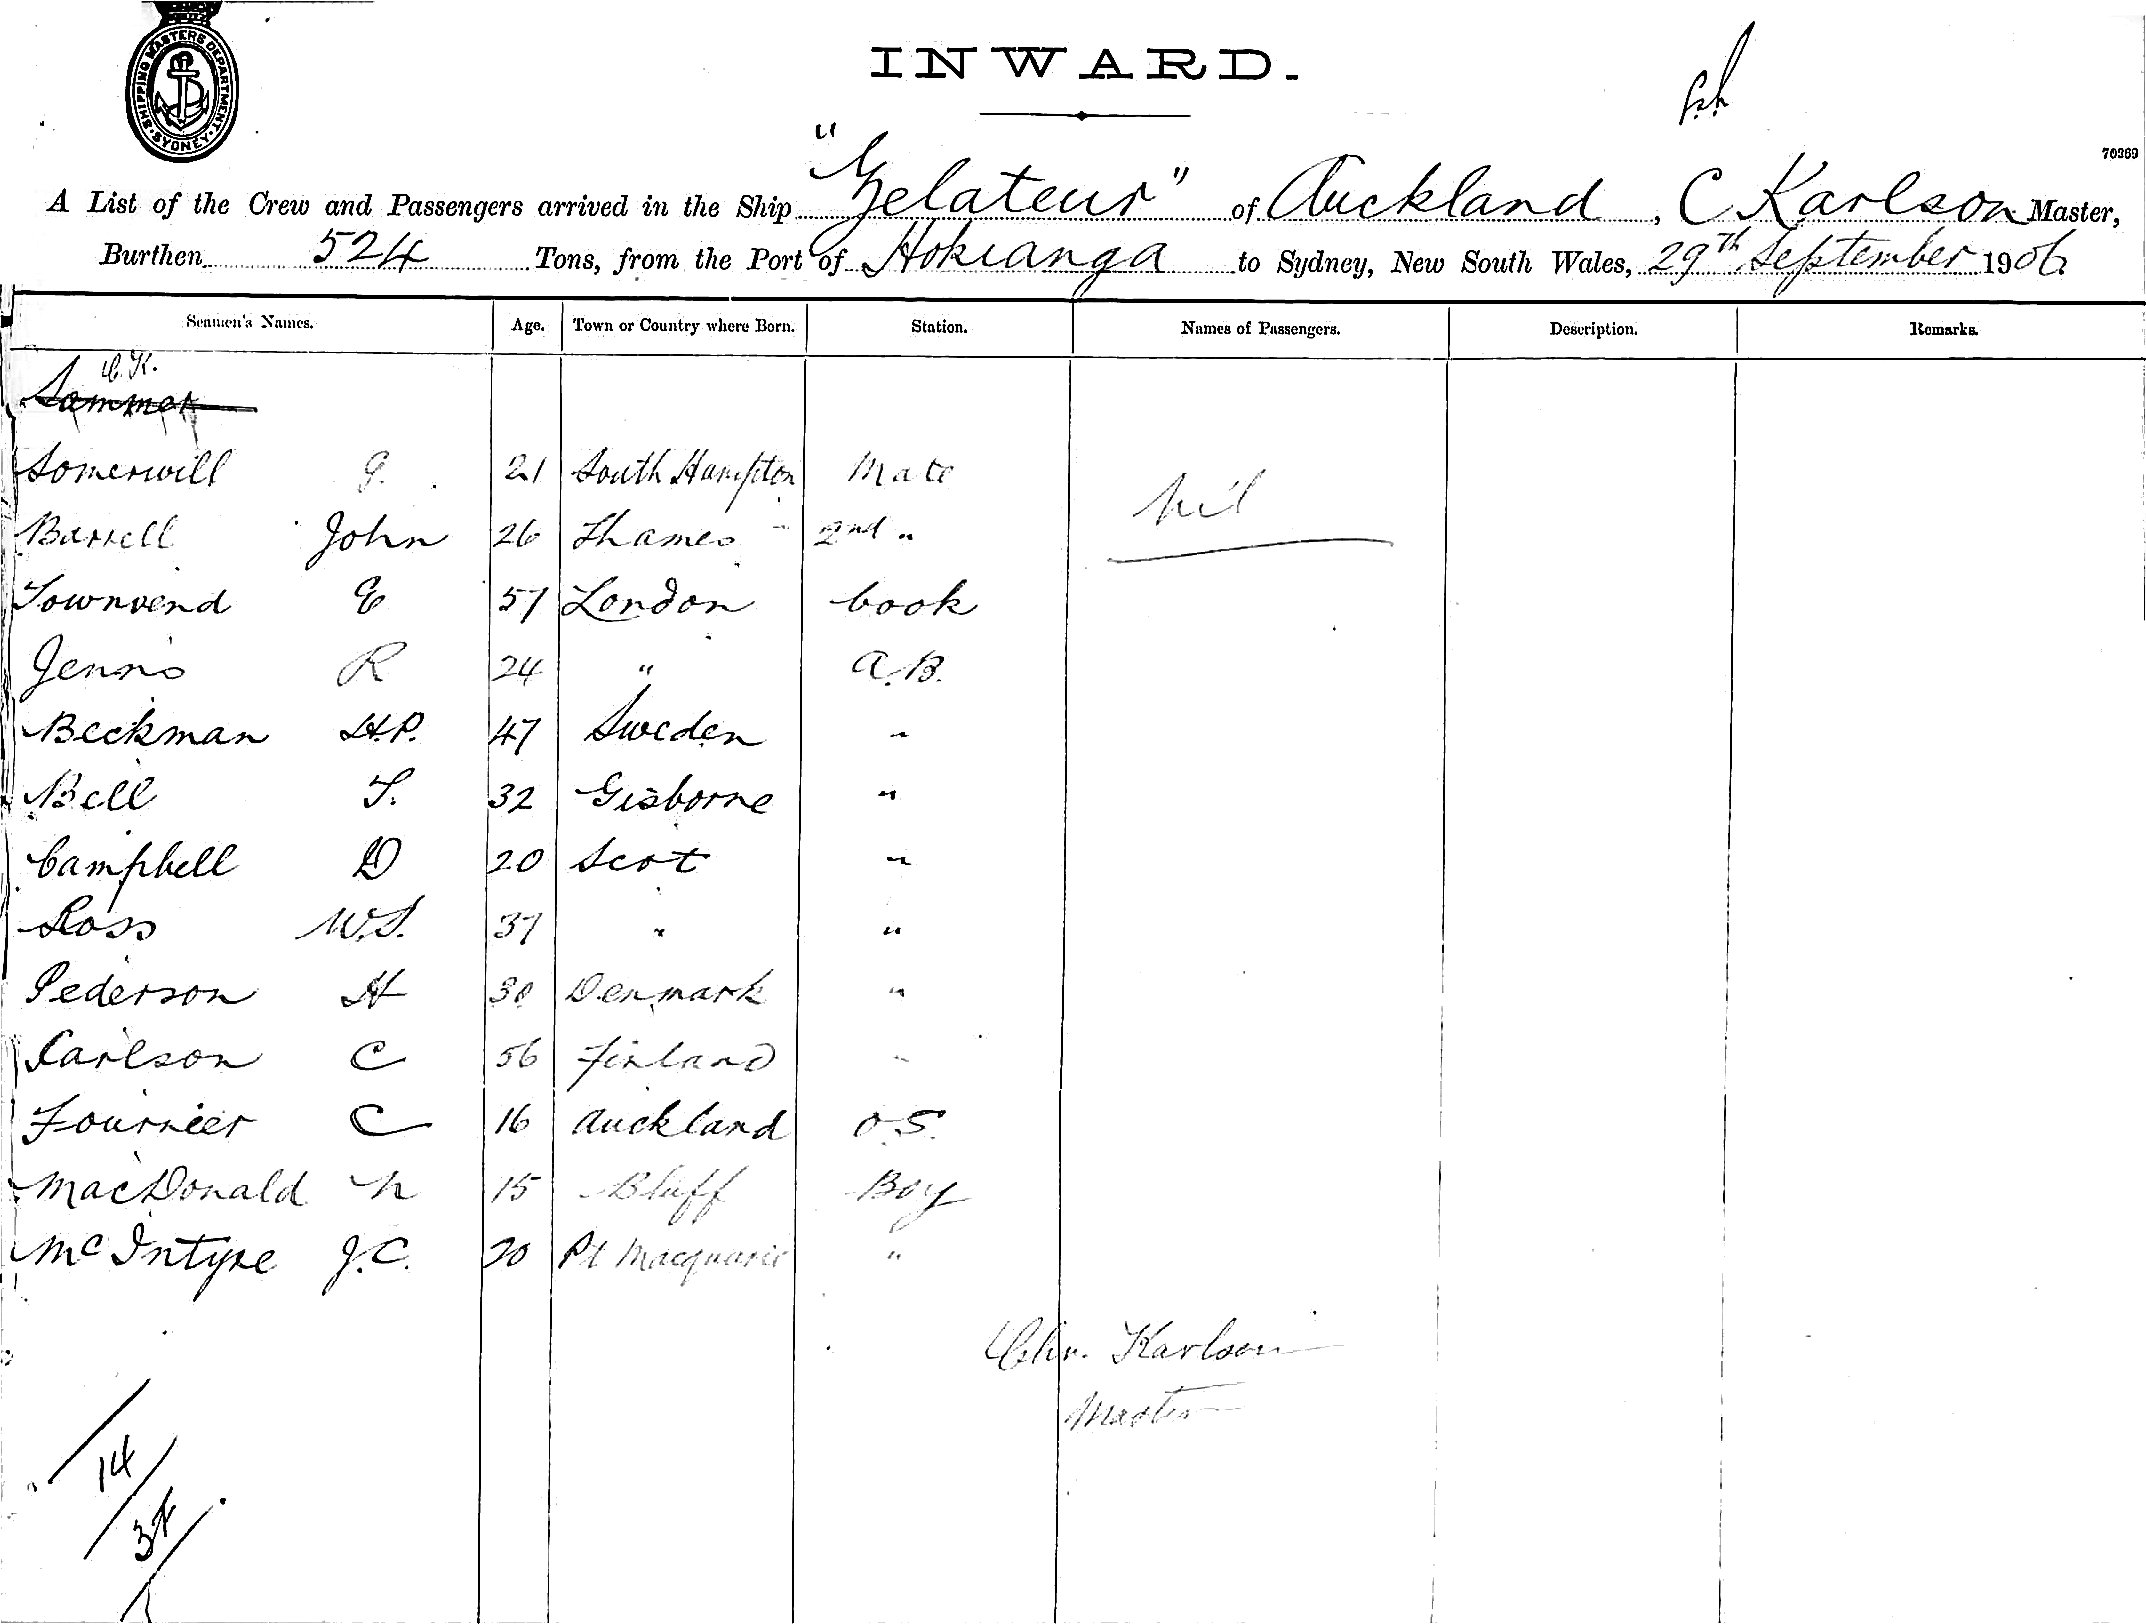 SHIPPING MASTERS DEPARTMENT · SYDNEY ·
INWARD.
70369
A List of the Crew and Passengers arrived in the Ship "Gelateur" of Auckland, C Karlson Master,
Burthen 524 Tons, from the Port of Hokianga to Sydney, New South Wales, 29th September 1906
Seamen's Names. Age. Town or Country where Born. Station. Names of Passengers. Description. Remarks.
C.K.
Sommer
Somerwill G. 21 South Hampton Mate
Nil
Barrell John 26 Thames 2nd "
Townsend E 57 London Cook
Jenns R 24 " A.B.
Beckman H.P. 47 Sweden "
Bell T. 32 Gisborne "
Campbell D 20 Scot "
Ross W.S. 37 " "
Pederson H 30 Denmark "
Carlson C 56 Finland "
Fournier C 16 Auckland O.S.
MacDonald N 15 Bluff Boy
McIntyre J.C. 20 Pt Macquarie "
Chr. Karlson
Master
14